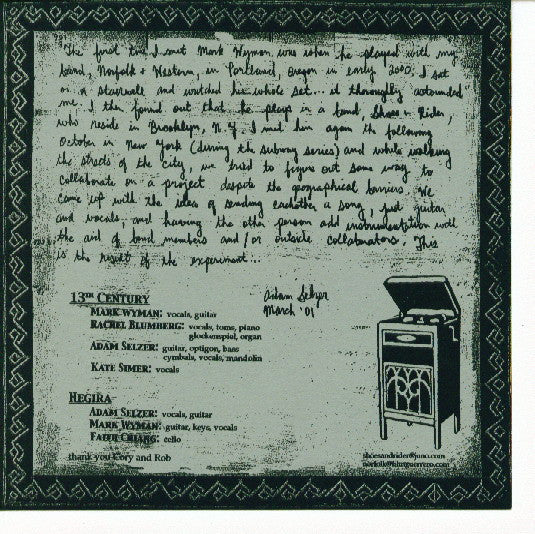 The first time I met Mark Wyman was when he played with my
band, Norfolk & Western, in Portland, Oregon in early 2000. I sat
on a stairwell and watched his whole set... it thoroughly astounded
me. I then found out that he plays in a band, Shoes & Rider,
who reside in Brooklyn, N.Y. I met him again the following
October in New York (during the subway series) and while walking
the streets of the city, we tried to figure out some way to
collaborate on a project despite the geographical barriers. We
came up with the idea of sending eachother a song, just guitar
and vocals, and having the other person add instrumentation with
the aid of band members and/or outside collaborators. This
is the result of the experiment...
Adam Selzer
March '01
13TH CENTURY
MARK WYMAN: vocals, guitar
RACHEL BLUMBERG: vocals, toms, piano
glockenspiel, organ
ADAM SELZER: guitar, optigon, bass
cymbals, vocals, mandolin
KATE SIMER: vocals
HEGIRA
ADAM SELZER: vocals, guitar
MARK WYMAN: guitar, keys, vocals
FAITH CHIANG: cello
thank you Cory and Rob
shoesandrider@juno.com
norfolk@hunguerrero.com